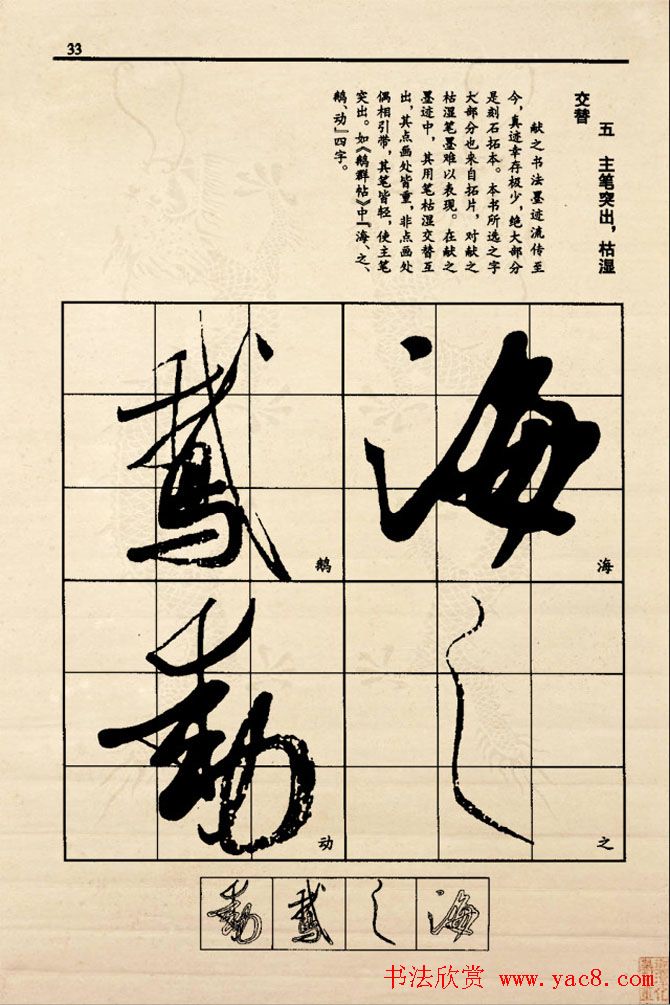 33
五 主笔突出，枯湿
交替
献之书法墨迹流传至
今，真迹幸存极少，绝大部分
是刻石拓本。本书所选之字
大部分也来自拓片，对献之
枯湿笔墨难以表现。在献之
墨迹中，其用笔枯湿交替互
出，其点画处皆重，非点画处
偶相引带，其笔皆轻，使主笔
突出。如《鹅群帖》中『海、之、
鹅、动』四字。
海
海
之
之
鵞
鹅
動
动
海
之
鵞
動
书法欣赏 www.yac8.com